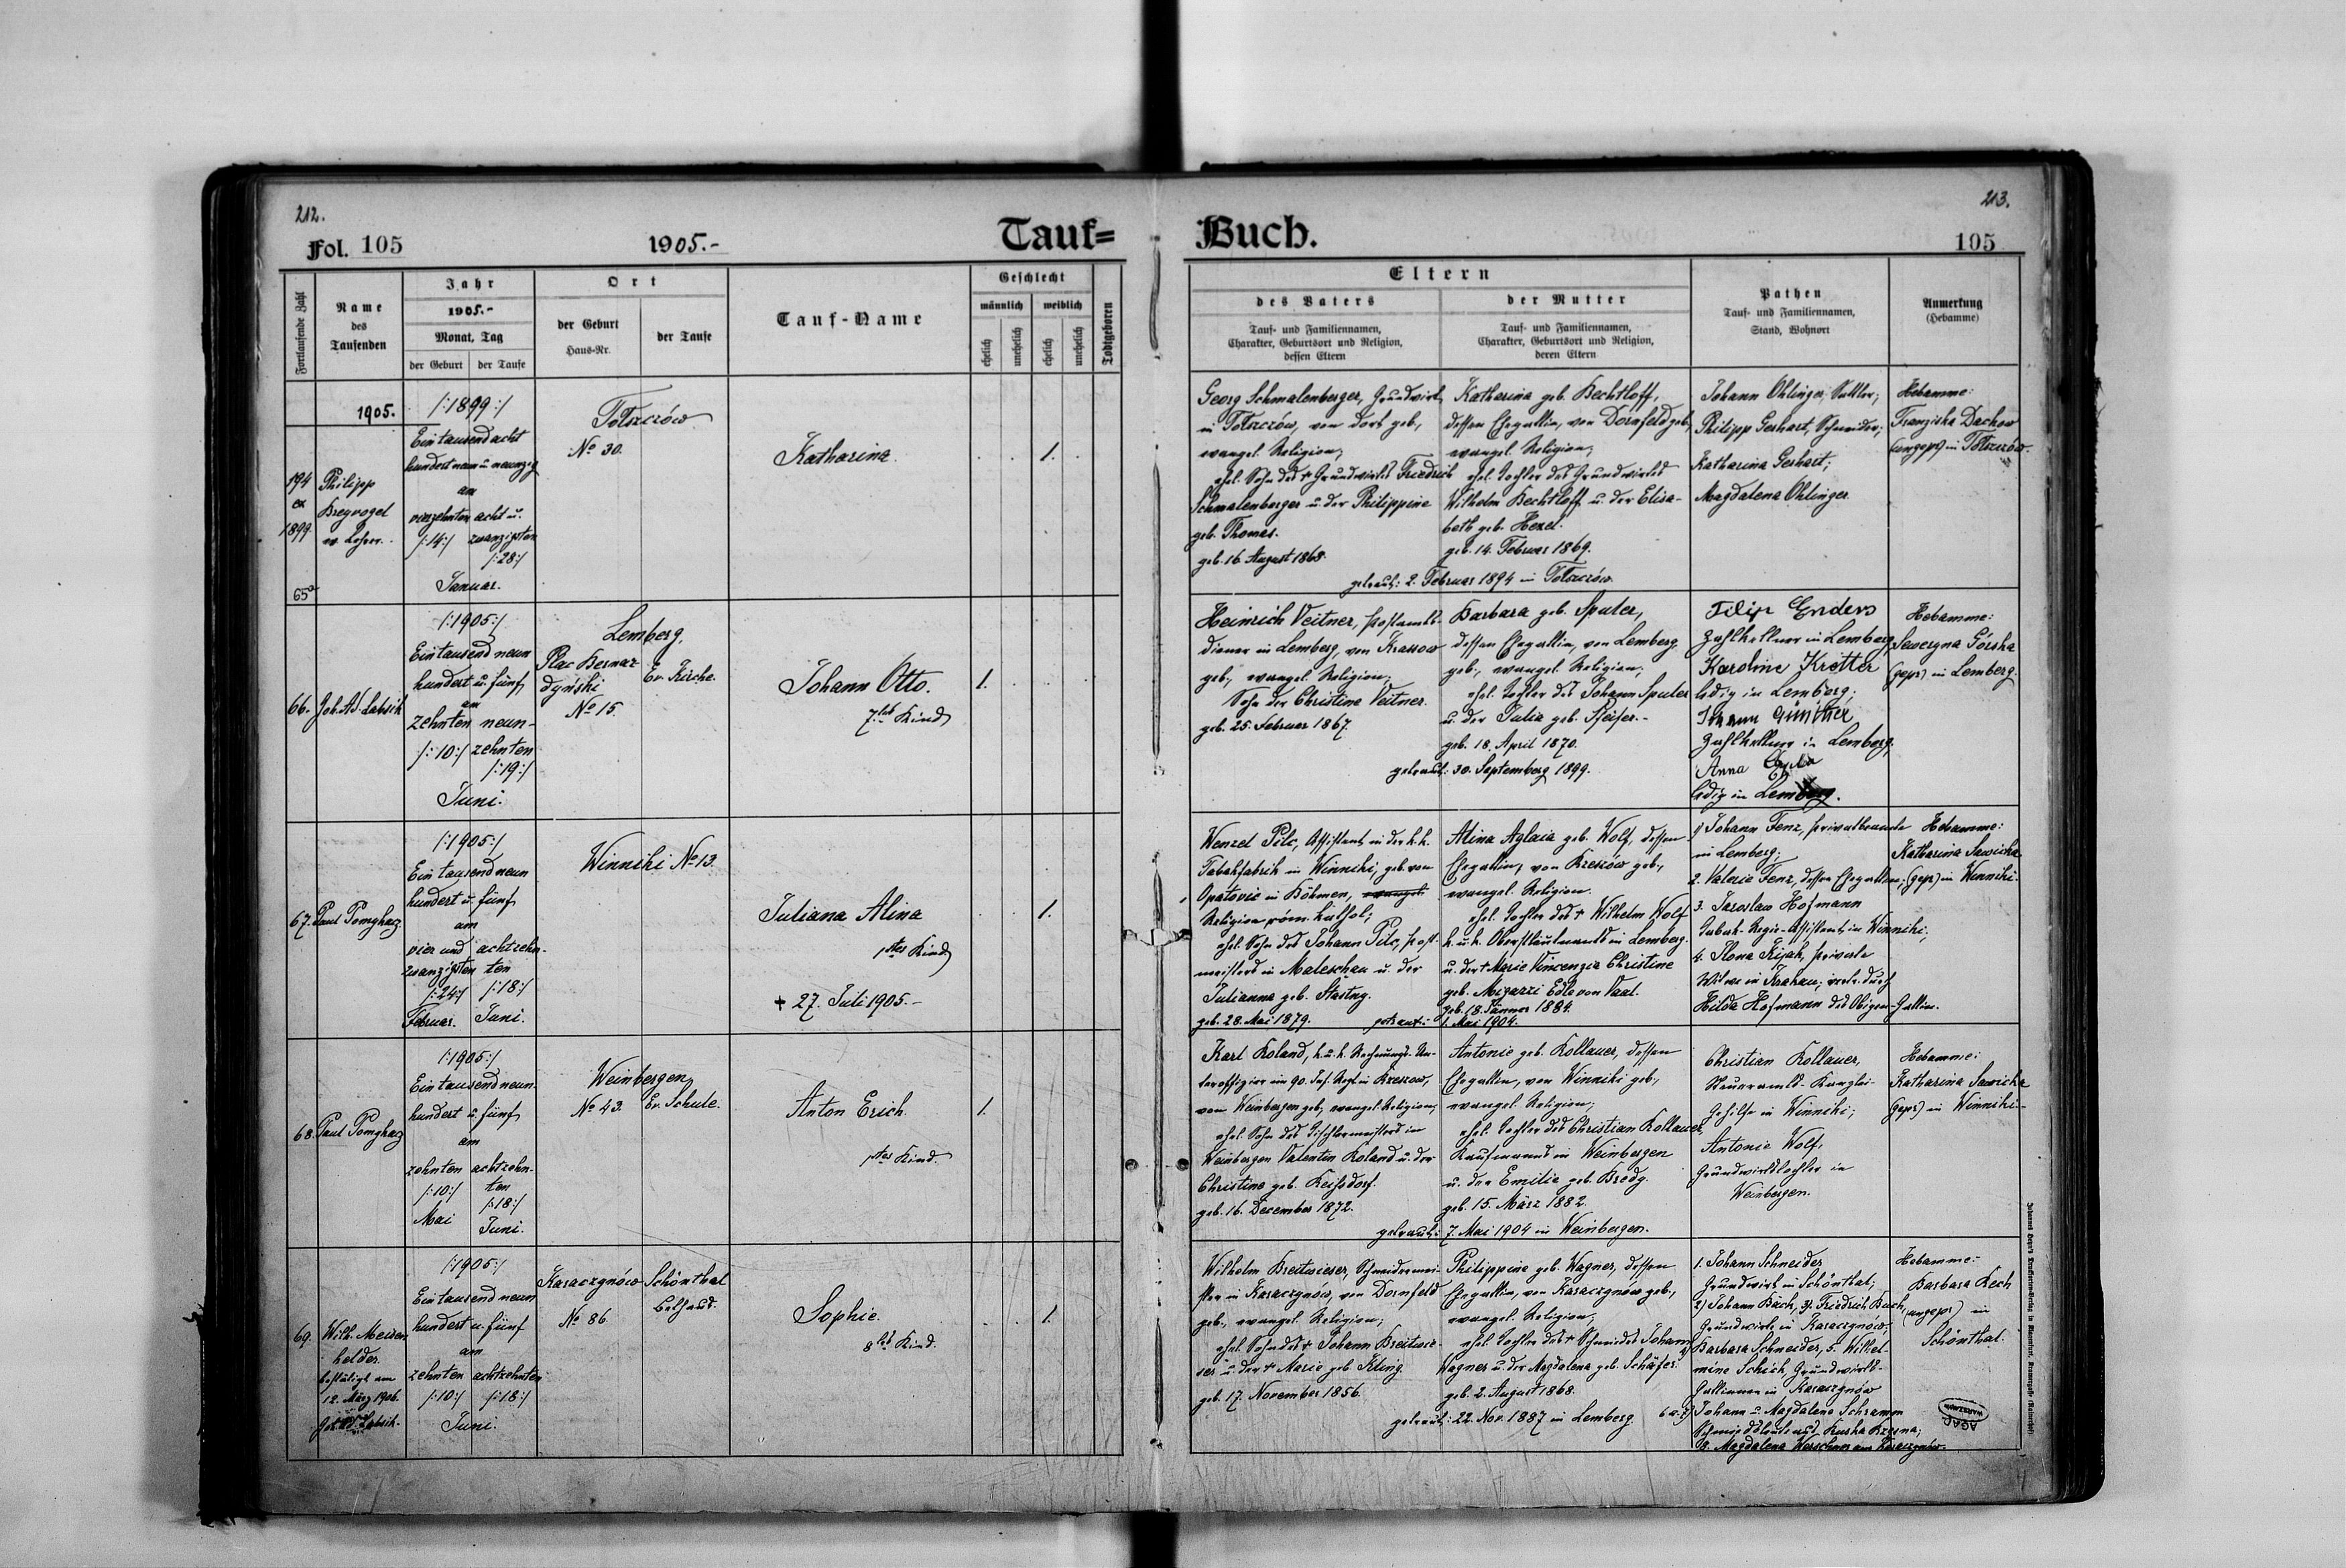 212.
Fol. 105
1905.-
Tauf=
Buch.
213.
105
Fortlaufende Zahl
Name
des
Taufenden
Jahr
1905.-
Monat, Tag
der Geburt
der Taufe
Ort
der Geburt
Haus-Nr.
der Taufe
Tauf-Name
Geschlecht
männlich
weiblich
ehelich
unehelich
ehelich
unehelich
Todtgeboren
Eltern
des Vaters
Tauf- und Familiennamen,
Charakter, Geburtsort und Religion,
dessen Eltern
der Mutter
Tauf- und Familiennamen,
Charakter, Geburtsort und Religion,
deren Eltern
Pathen
Tauf- und Familiennamen,
Stand, Wohnort
Anmerkung
(Hebamme)
1905.
194
ex
1899
65a
Philipp
Bregvogel
/:1899:/
Ein tausend acht
hundert neun u. neunzig
am
vierzehnten acht u.
/:14:/ zwanzigsten
/:28:/
Januar.
No 30.
Katharina.
1.
Georg Schmalenberger, Grundwirt
in, von dort geb.,
evangel. Religion;
ehel. Sohn des + Grundwirtes Friedrich
Schmalenberger u. der Philippine
geb. Thomas.
geb. 16. August 1868.
Katharina geb. Bechtloff,
dessen Ehegattin, von Dornfeld geb.,
evangel. Religion;
ehel. Tochter des Grundwirtes
Wilhelm Bechtloff u. der Elisa-
beth geb. Hexel.
geb. 14. Februar 1869.
getraut: 2. Februar 1894 in
Johann Ohlinger, Sattler;
Philipp Gerhart, Schneider;
Katharina Gerhart;
Magdalena Ohlinger
Hebamme:
Franziska Dachow
(ungepr) in
66.
Joh. Ad. Labsik
/:1905:/
Ein tausend neun
hundert u. fünf
am
zehnten neun-
/:10:/ zehnten
/:19:/
Juni.
Lemberg,
Plac Bernar
dyński
No 15.
Ev. Kirche.
Johann Otto.
7.tes Kind
1.
Heinrich Veitner, Postamts-
diener in Lemberg, von Krassow
geb., evangel. Religion;
Sohn der Christine Veitner.
geb. 25. Februar 1867.
Barbara geb. Sputer,
dessen Ehegattin, von Lemberg
geb., evangel. Religion;
ehel. Tochter des Johann Sputer
u. der Julie geb. Pfeifer.-
geb. 18. April 1870.
getraut: 30. September 1899.
Filip Enders
Zahlkellner in Lemberg,
Karoline Krotter
ledig in Lemberg;
Johann Günther
Zahlkellner in Lemberg,
Anna
ledig in Lemberg.
Hebamme:
Seweryna Górska
(gepr) in Lemberg.
67.
Paul Pomykacz
/:1905:/
Ein tausend neun
hundert u. fünf
am
vier und achtzehn-
zwanzigsten ten
/:24:/ /:18:/
Februar. Juni.
Winniki No 13.
Juliana Alina
1tes Kind
+ 27. Juli 1905.-
1.
Wenzel Pilc, Assistent in der k.k.
Tabakfabrik in Winniki, geb. von
Opatovic in Böhmen, evangel.
Religion röm. kathol;
ehel. Sohn des Johann Pilc, Post-
meisters in Maleschau u. der
Julianna geb. Stastny.
geb. 28. Mai 1879.
Alina Aglaia geb. Wolf, dessen
Ehegattin, von Rzeszów geb.,
evangel. Religion.
ehel. Tochter des + Wilhelm Wolf
k. u. k. Oberstlieutenants in Lemberg.
u. der + Marie Vincenzia Christine
geb. Migazzi Edle von Vaal.
geb. 18. Jänner 1884.
getraut: 1. Mai 1904.
1) Johann Fenz, Privatbeamte
in Lemberg;
2. Valerie Fenz, dessen Ehegattin;
3. Jaroslaw Hofmann
Tabak-Regie-Assistent in Winniki;
4. Ilona Kijak, Private
Witwe in Krakau; vertr. durch
Hilda Hofmann des Obigen-Gattin.
Hebamme:
Katharina Sawicka
(gepr) in Winniki.
68.
Paul Pomykacz
/:1905:/
Ein tausend neun-
hundert u. fünf
am
zehnten achtzehn-
/:10:/ ten
/:18:/
Mai Juni.
Weinbergen
No 43.
Ev. Schule.
Anton Erich.
1tes Kind.
1.
Karl Roland, k. u. k. Rechnungs-Un-
teroffizier im 90. Inf. Regt in Rzeszow,
von Weinbergen geb., evangel. Religion;
ehel. Sohn des Tischlermeisters in
Weinbergen Valentin Roland u. der
Christine geb. Reihsdorf.
geb. 16. December 1872.
Antonie geb. Kollauer, dessen
Ehegattin, von Winniki geb.,
evangel. Religion;
ehel. Tochter des Christian Kollauer,
Kaufmanns in Weinbergen
u. der Emilie geb. Bredy.
geb. 15. März 1882.
getraut: 7. Mai 1904 in Weinbergen.
Christian Kollauer,
Steueramts-Kanzlei-
Gehilfe in Winniki;
Antonie Wolf,
Grundwirtstochter in
Weinbergen.
Hebamme:
Katharina Sawicka
(gepr) in Winniki-
69.
Wilh. Meiden
helder.
bestätigt am
12. März 1906.
Joh. Ad. Labsik.
/:1905:/
Ein tausend neun
hundert u. fünf
am
zehnten achtzehnten
/:10:/ /:18:/
Juni.
Karaczynów
No 86.
Schönthal
Bethaus.
Sophie.
8tes Kind.
1.
Wilhelm Breitwieser, Schneidermei-
ster in Karaczynow, von Dornfeld
geb., evangel. Religion;
ehel. Sohn des + Johann Breitwie-
ser u. der + Marie geb. Kling.
geb. 17. November 1856.
Philippine geb. Wagner, dessen
Ehegattin, von Karaczynów geb.,
evangel. Religion;
ehel. Tochter des + Schmides Johann
Wagner u. der Magdalena geb. Schäfer.
geb. 2. August 1868.
getraut: 22. Nov. 1887 in Lemberg.
1. Johann Schneider
Grundwirt in Schönthal;
2) Johann Bäch, 3) Friedrich Buch,
Grundwirte in Karaczynów;
4) Barbara Schneider, 5. Wilhel-
mine Schick, Grundwirts-
Gattinnen in Karaczynów
6 u. 7) Johann u. Magdalena Schramm
Schmiedsleute aus;
8. Magdalena aus Karaczynów.
Hebamme:
Barbara Rech
(ungepr) in
Schönthal.
AGAD
WARSZAWA